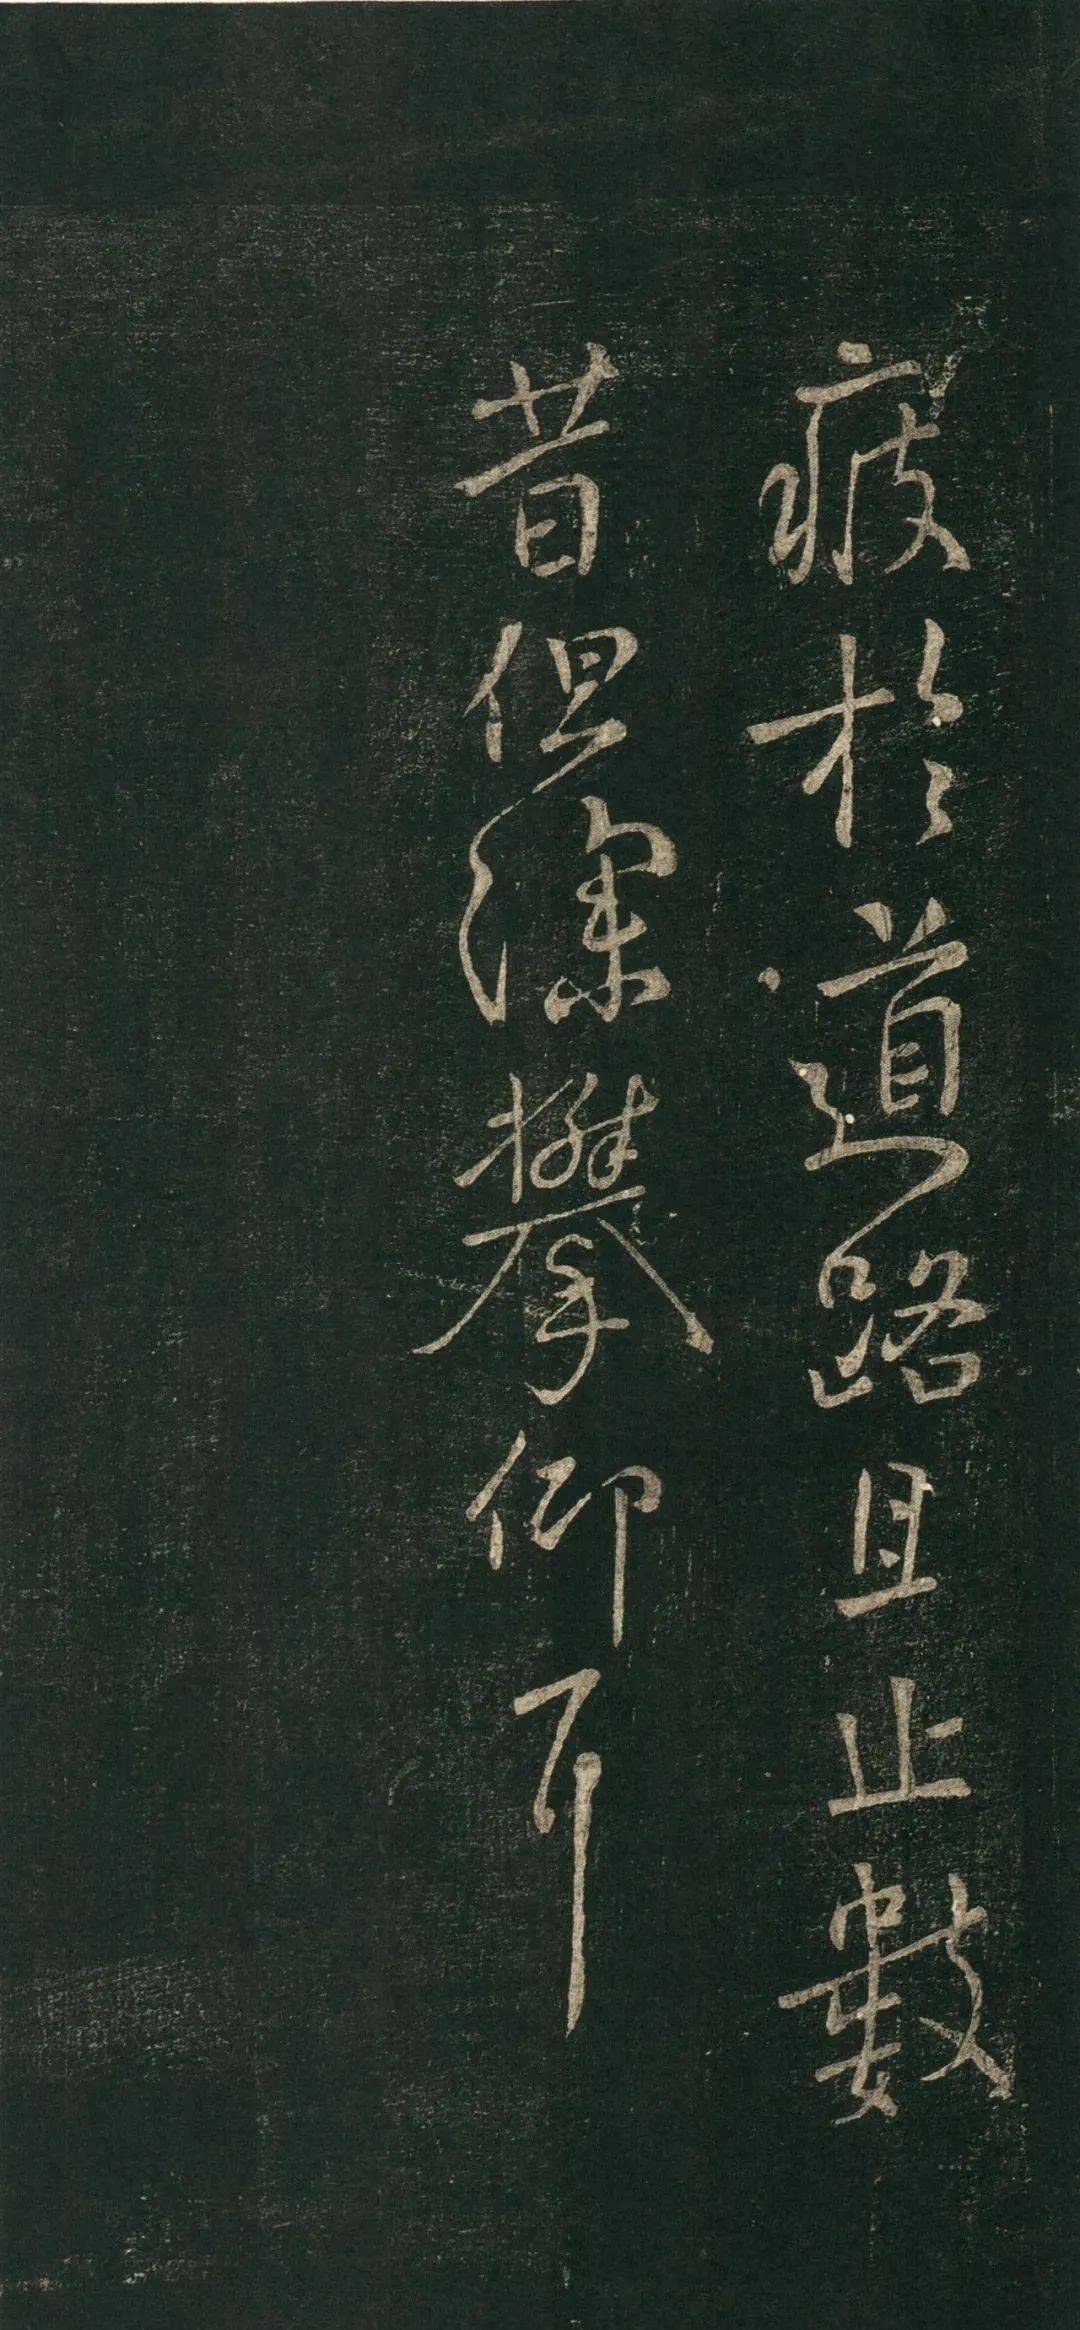 疲於道路且止數
昔但深攀仰耳